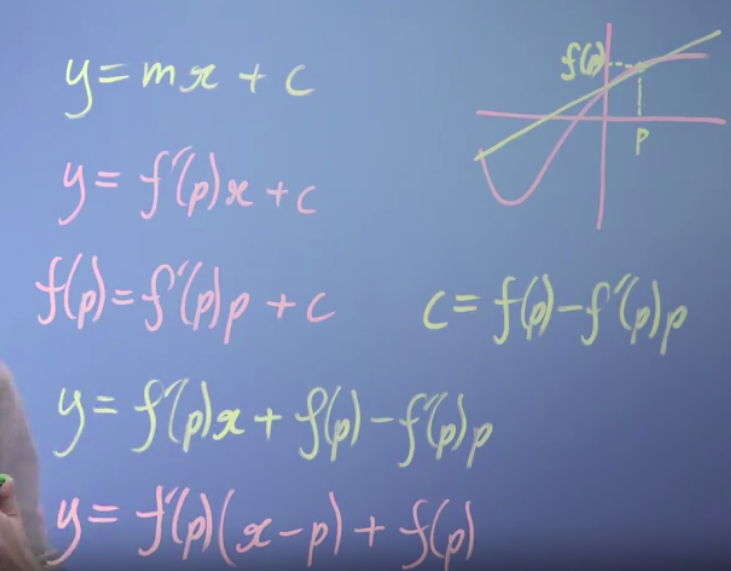 y = mx + c
f(p)
p
y = f'(p)x + c
f(p) = f'(p)p + c
c = f(p) - f'(p)p
y = f'(p)x + f(p) - f'(p)p
y = f'(p)(x - p) + f(p)